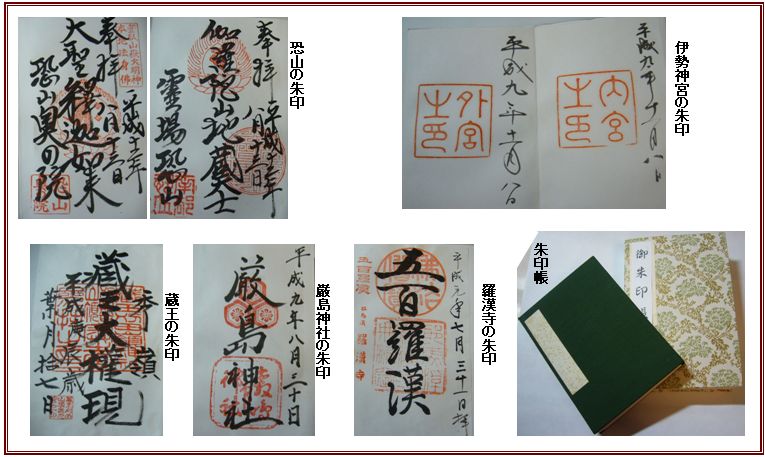 恐山の朱印
奉拝
平成十三年
八月十三日
大聖釋迦如来
恐山奥の院
奉拝
平成十三年
八月十三日
伽羅陀山地蔵大士
霊場恐山
伊勢神宮の朱印
平成九年十一月八日
内宮
之印
平成九年十一月八日
外宮
之印
蔵王の朱印
蔵王大権現
葉月拾七日
厳島神社の朱印
平成九年八月三十日
厳島神社
羅漢寺の朱印
平成元年七月三十一日拝
五百羅漢
五百羅漢
羅漢寺
朱印帳
御朱印